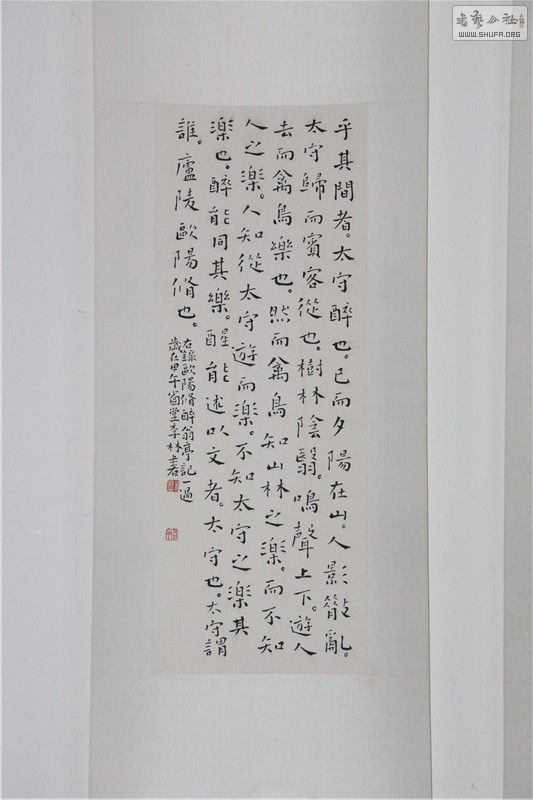 乎其間者。太守醉也。已而夕陽在山。人影散亂。
太守歸而賓客從也。樹林陰翳。鳴聲上下。遊人
去而禽鳥樂也。然而禽鳥知山林之樂。而不知
人之樂。人知從太守遊而樂。不知太守之樂其
樂也。醉能同其樂。醒能述以文者。太守也。太守謂
誰。廬陵歐陽脩也。
右錄歐陽脩醉翁亭記一過
歲在甲午
李林書
書藝公社
WWW.SHUFA.ORG